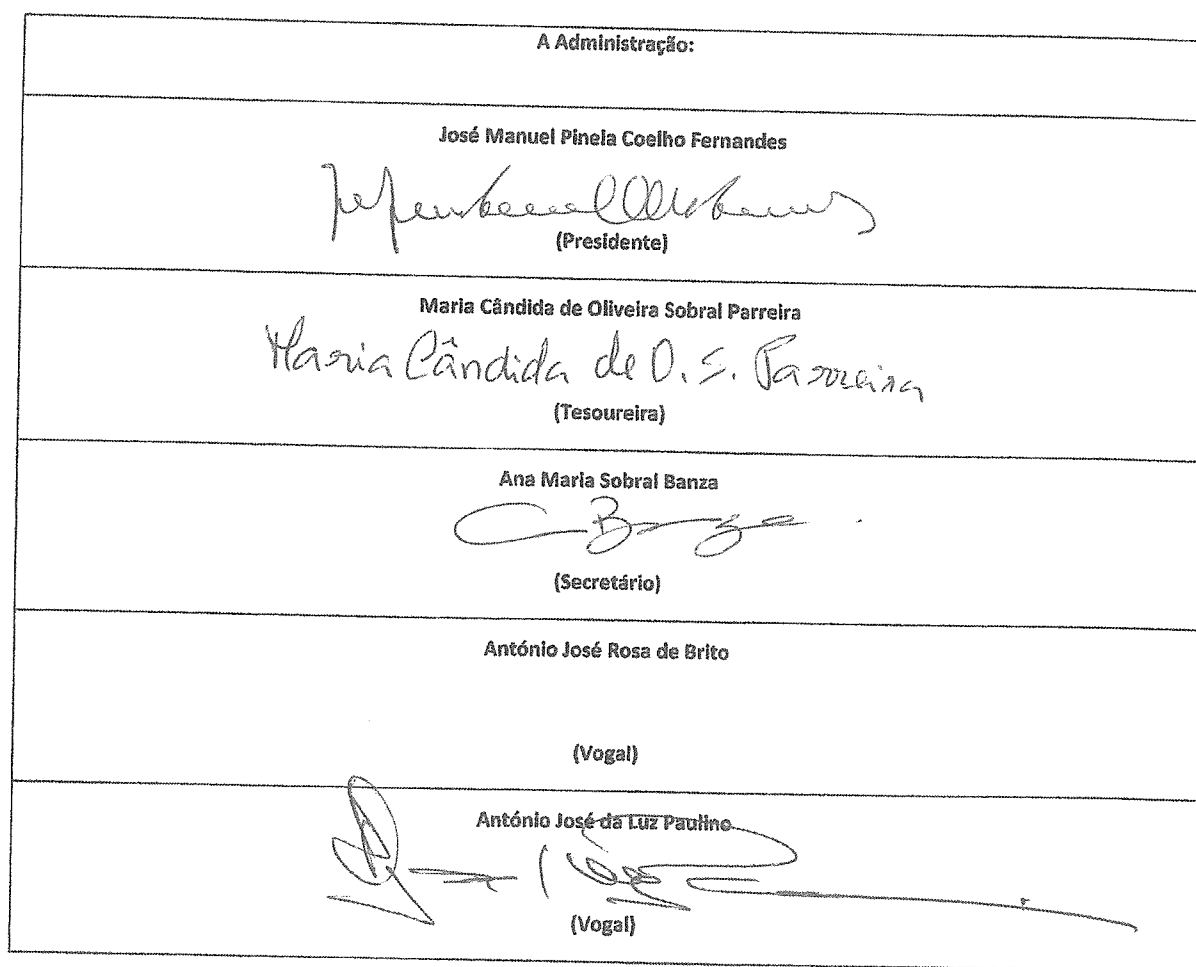 A Administração:
José Manuel Pinela Coelho Fernandes
(Presidente)
Maria Cândida de Oliveira Sobral Parreira
Maria Cândida de O. S. Parreira
(Tesoureira)
Ana Maria Sobral Banza
(Secretário)
António José Rosa de Brito
(Vogal)
António José da Luz Paulino
(Vogal)